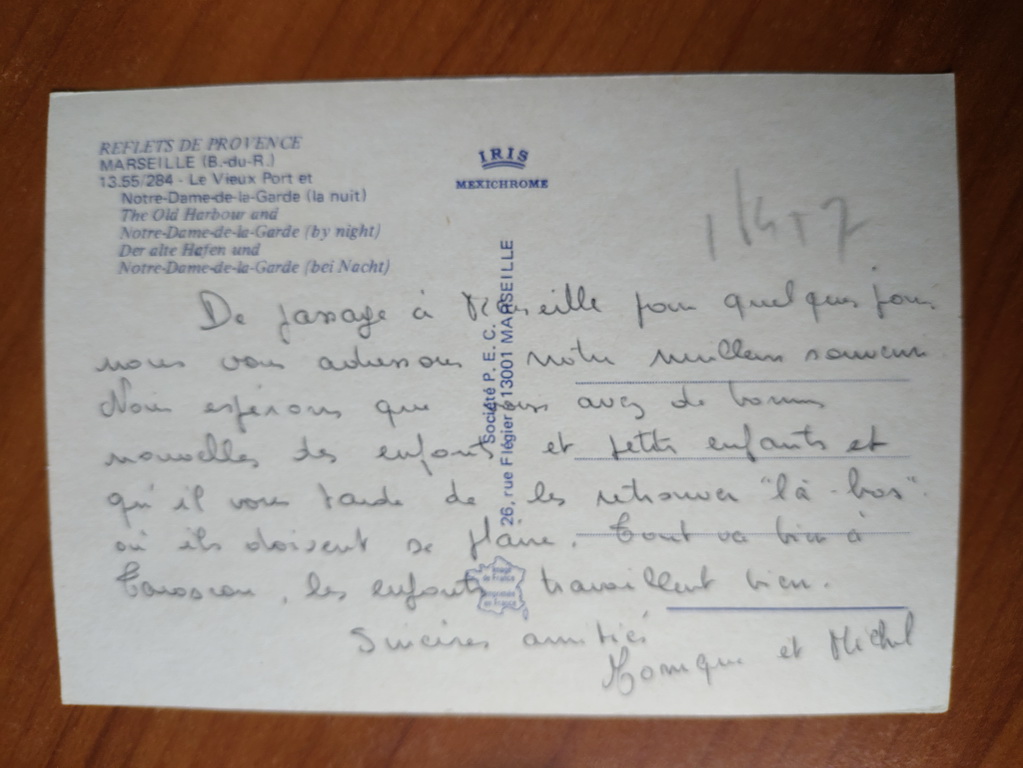 REFLETS DE PROVENCE
MARSEILLE (B.-du-R.)
13.55/284 - Le Vieux Port et
Notre-Dame-de-la-Garde (la nuit)
The Old Harbour and
Notre-Dame-de-la-Garde (by night)
Der alte Hafen und
Notre-Dame-de-la-Garde (bei Nacht)
IRIS
MEXICHROME
Société P. E. C.
26, rue Flégier - 13001 MARSEILLE
De passage à Marseille pour quelques jours
nous vous adressons notre meilleur souvenir
Nous espérons que vous avez de bonnes
nouvelles des enfants et petits enfants et
qu'il vous tarde de les retrouver "là-bas".
où ils doivent se plaire. Tout va bien à
Tarascon, les enfants travaillent bien.
Sincères amitiés
Monique et Michel
Image
de France
Imprimée
en France